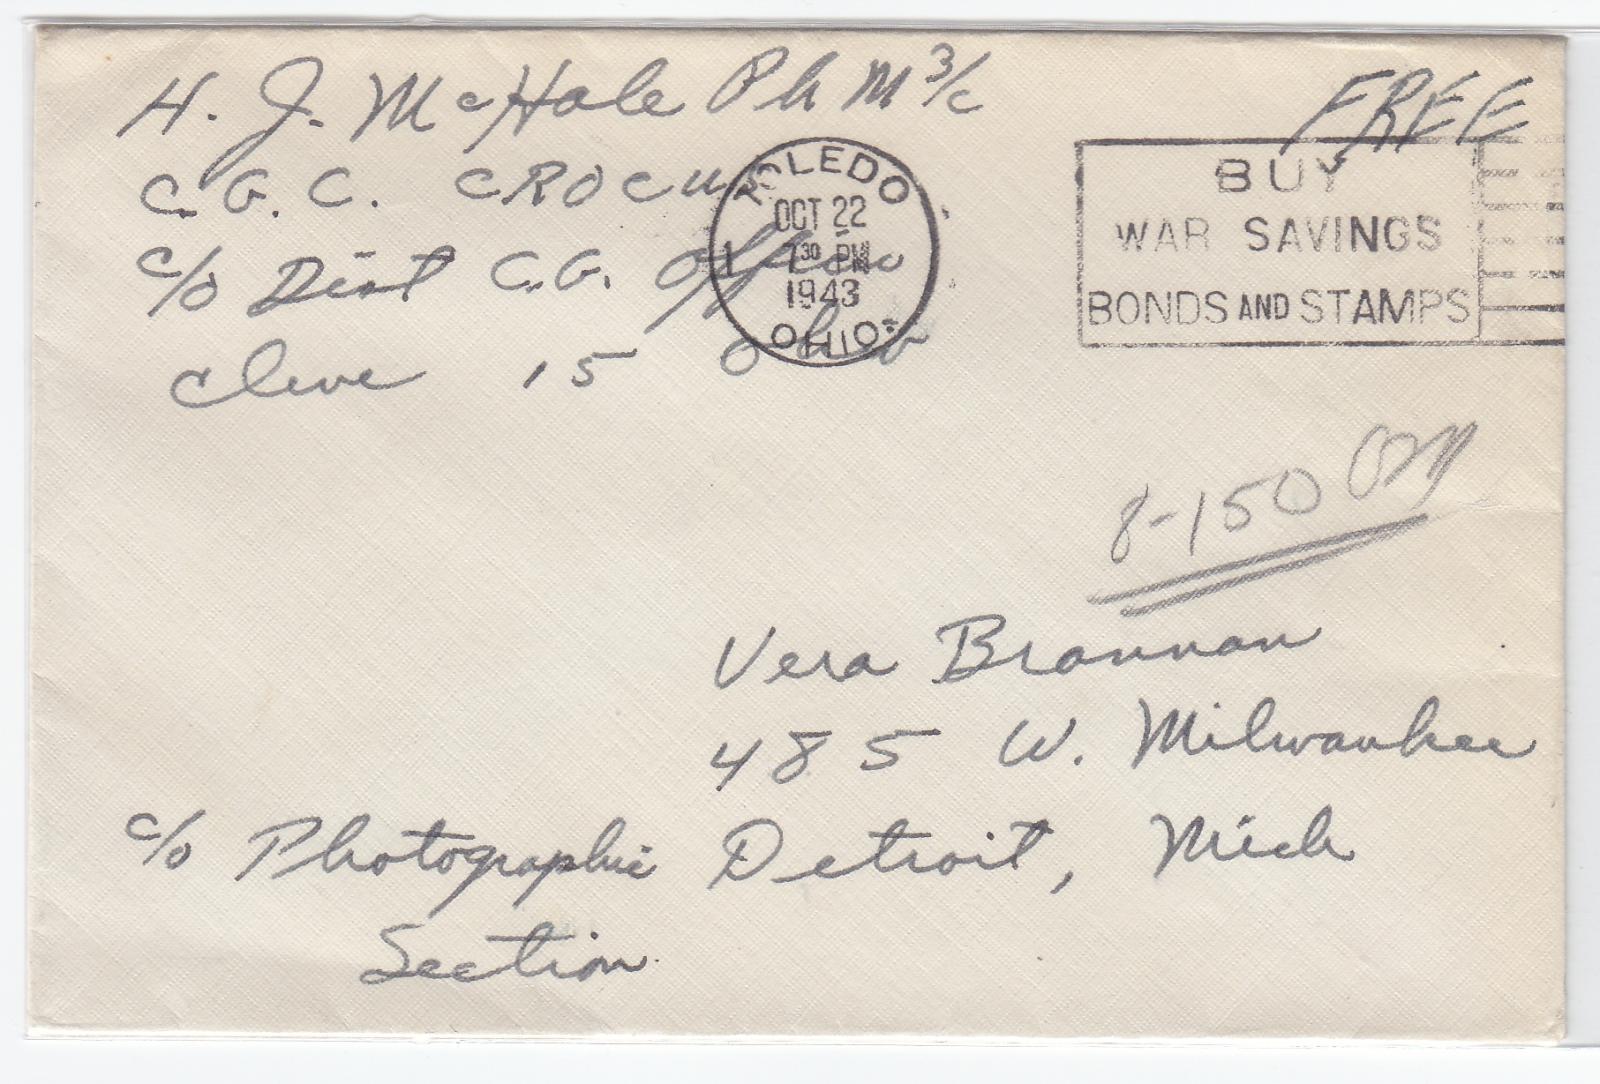 H. J. McHale Ph M 3/c
FREE
C.G.C. CROCUS
c/o Dist C.G. Office
Cleve 15 Ohio
TOLEDO
OCT 22
7 30 PM
1943
OHIO
1
BUY
WAR SAVINGS
BONDS AND STAMPS
8-150
Vera Brannan
485 W. Milwaukee
c/o Photographic Detroit, Mich
Section